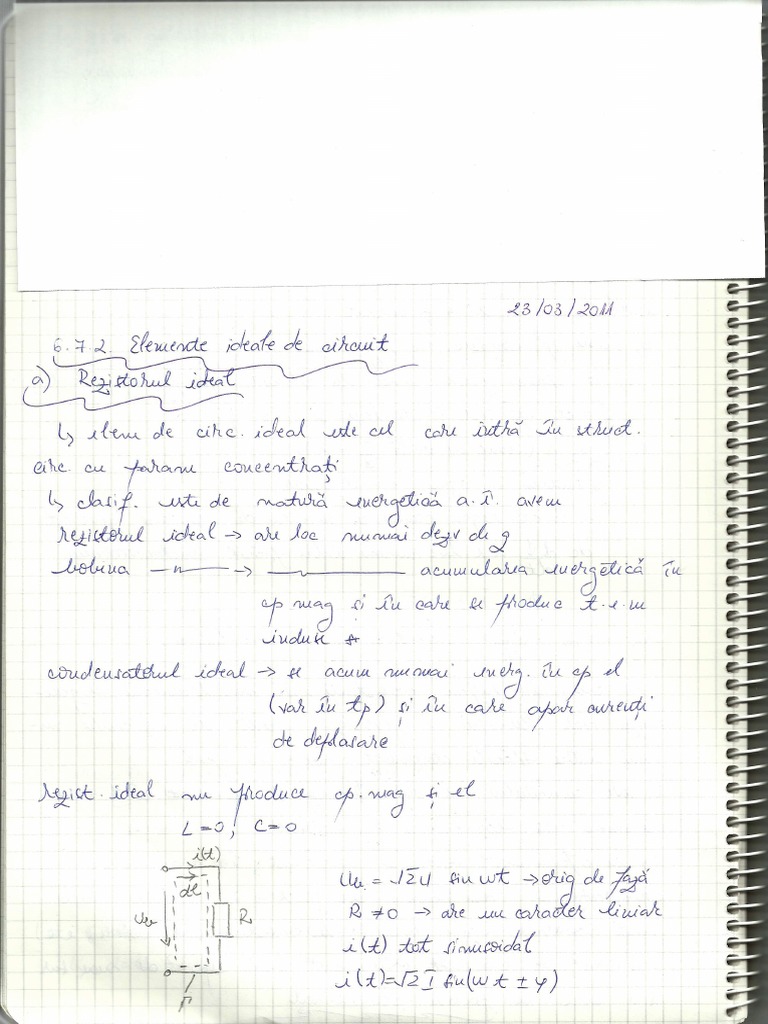 23/03/2011
6.7.2. Elemente ideale de circuit
a) Rezistorul ideal
↳ elem de circ. ideal este cel care intră în struct.
circ. cu param concentrați
↳ clasif. este de natură energetică a.î. avem
rezistorul ideal → are loc numai dezv de q
bobina —"— → ——— acumularea energetică în
cp mag și în care se produc t.e.m
induse
condensatorul ideal → se acum numai energ. în cp el
(var în tp) și în care apar curenți
de deplasare
rezist. ideal nu produce cp. mag și el
L=0; C=0
i(t)
dl
R
Γ
u_b = √2U sin ωt → orig de fază
R ≠0 → are un caracter liniar
i(t) tot sinusoidal
i(t)=√2 I sin(ωt ± φ)